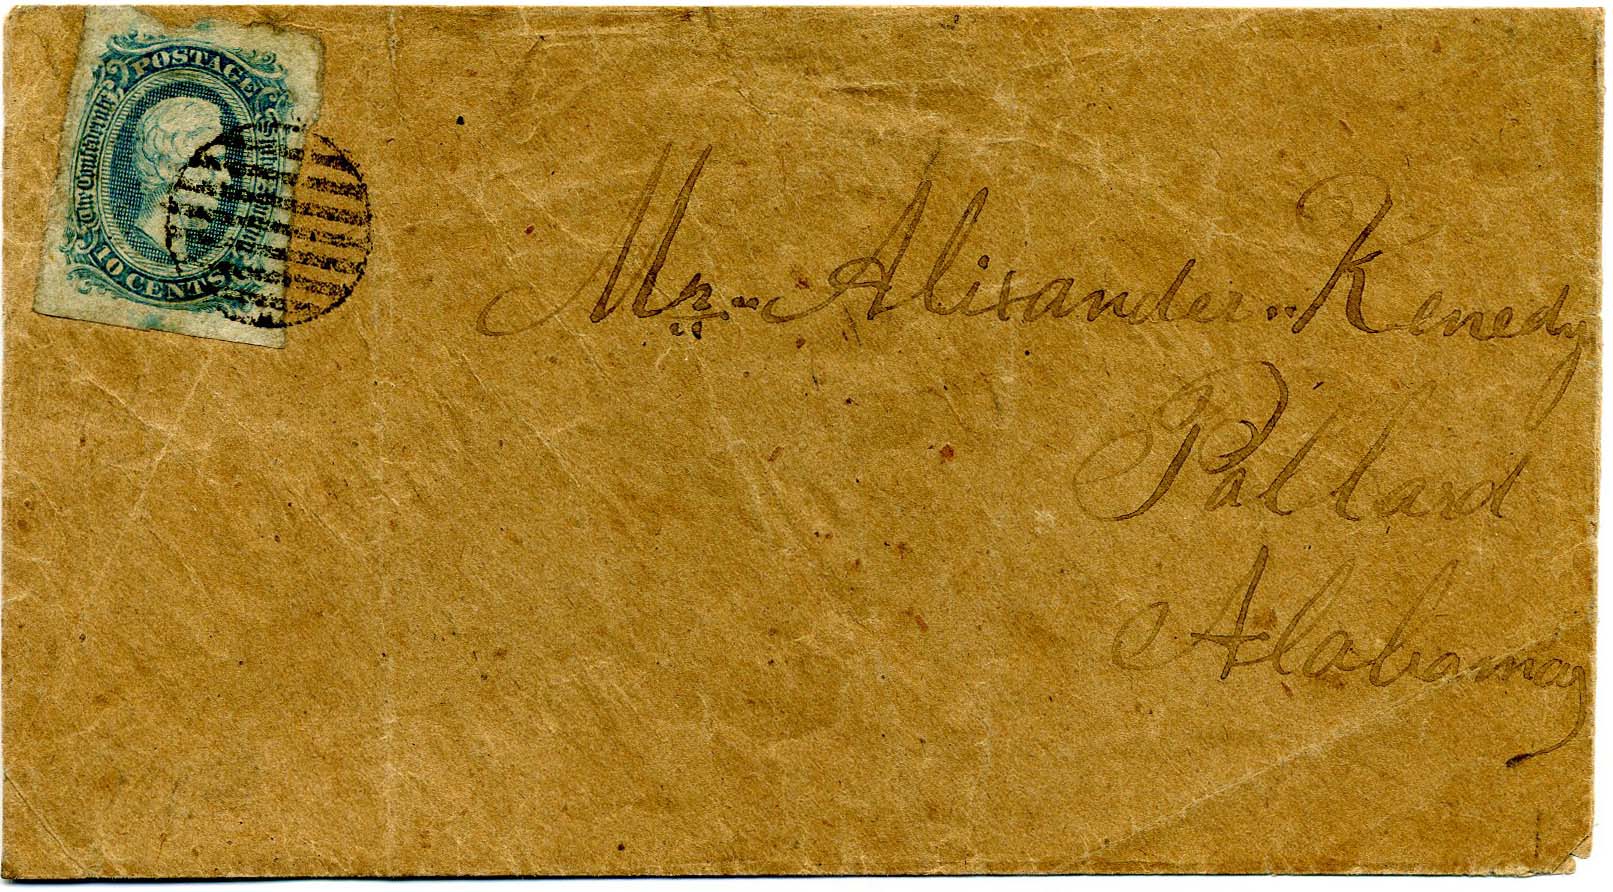 POSTAGE
The Confederate
States of America
10 CENTS
Mr. Alixander. Kenedy
Pollard
Alabama